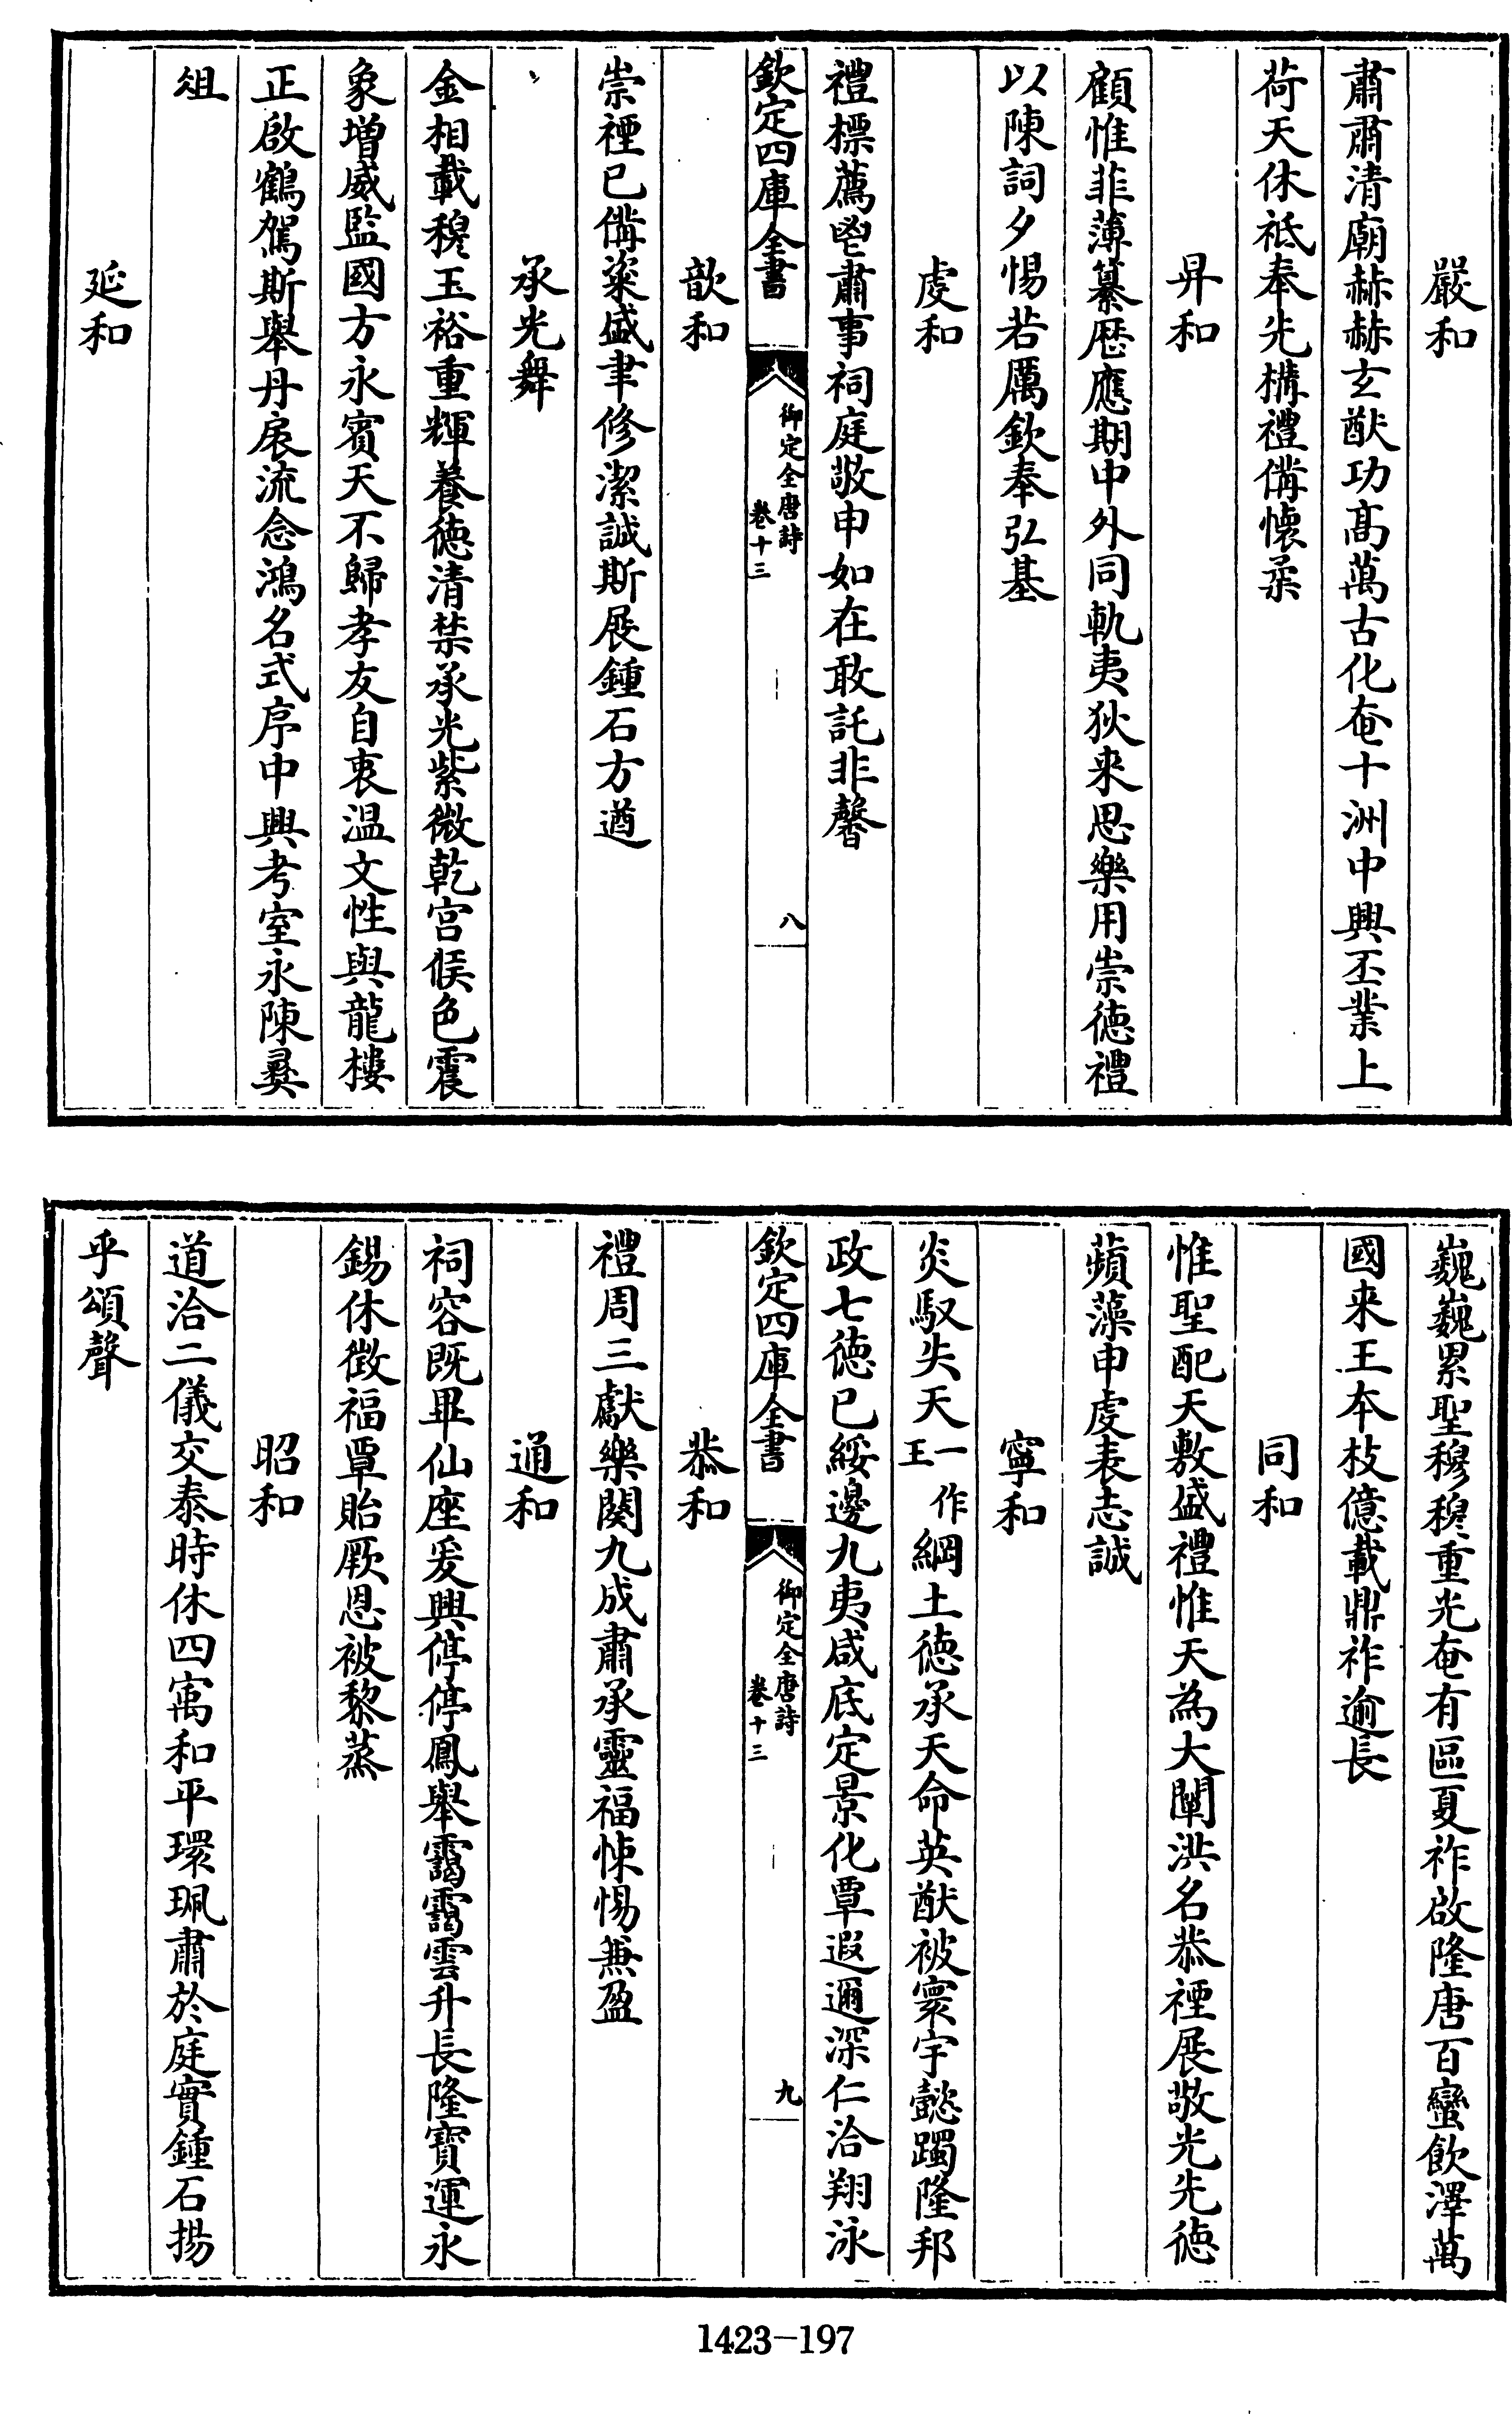 嚴和
肅肅清廟赫赫玄猷功髙萬古化奄十洲中興丕業上
荷天休祗奉先構禮備懷柔
昇和
顧惟菲薄纂歴應期中外同軌夷狄来思樂用崇徳禮
以陳詞夕惕若厲欽奉弘基
䖍和
禮標薦鬯肅事祠庭敬申如在敢託非馨
欽定四庫全書
御定全唐詩
卷十三
八
歆和
崇禋已備粢盛聿修潔誠斯展鍾石方遒
承光舞
金相載穆玉裕重輝養徳清禁承光紫微乾宫候色震
象增威監國方永賓天不歸孝友自衷温文性與龍樓
正啟鶴駕斯舉丹扆流念鴻名式序中興考室永陳彞
俎
延和
巍巍累聖穆穆重光奄有區夏祚啟隆唐百蠻飲澤萬
國来王本枝億載鼎祚逾長
同和
惟聖配天敷盛禮惟天為大闡洪名恭禋展敬光先徳
蘋藻申䖍表志誠
寧和
炎馭失天一作王綱土徳承天命英猷被寰宇懿躅隆邦
政七徳已綏邊九夷咸底定景化覃遐邇深仁洽翔泳
欽定四庫全書
御定全唐詩
卷十三
九
恭和
禮周三獻樂闋九成肅承靈福悚惕兼盈
通和
祠容既畢仙座爰興停停鳳舉靄靄雲升長隆寳運永
錫休徴福覃貽厥恩被黎蒸
昭和
道洽二儀交泰時休四㝢和平環珮肅於庭實鍾石揚
乎頌聲
1423-197